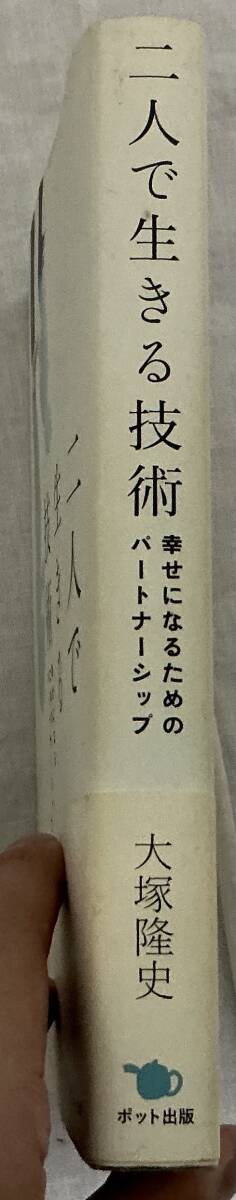 二人で生きる技術
幸せになるための
パートナーシップ
大塚隆史
ポット出版
二人で
生きる
技術